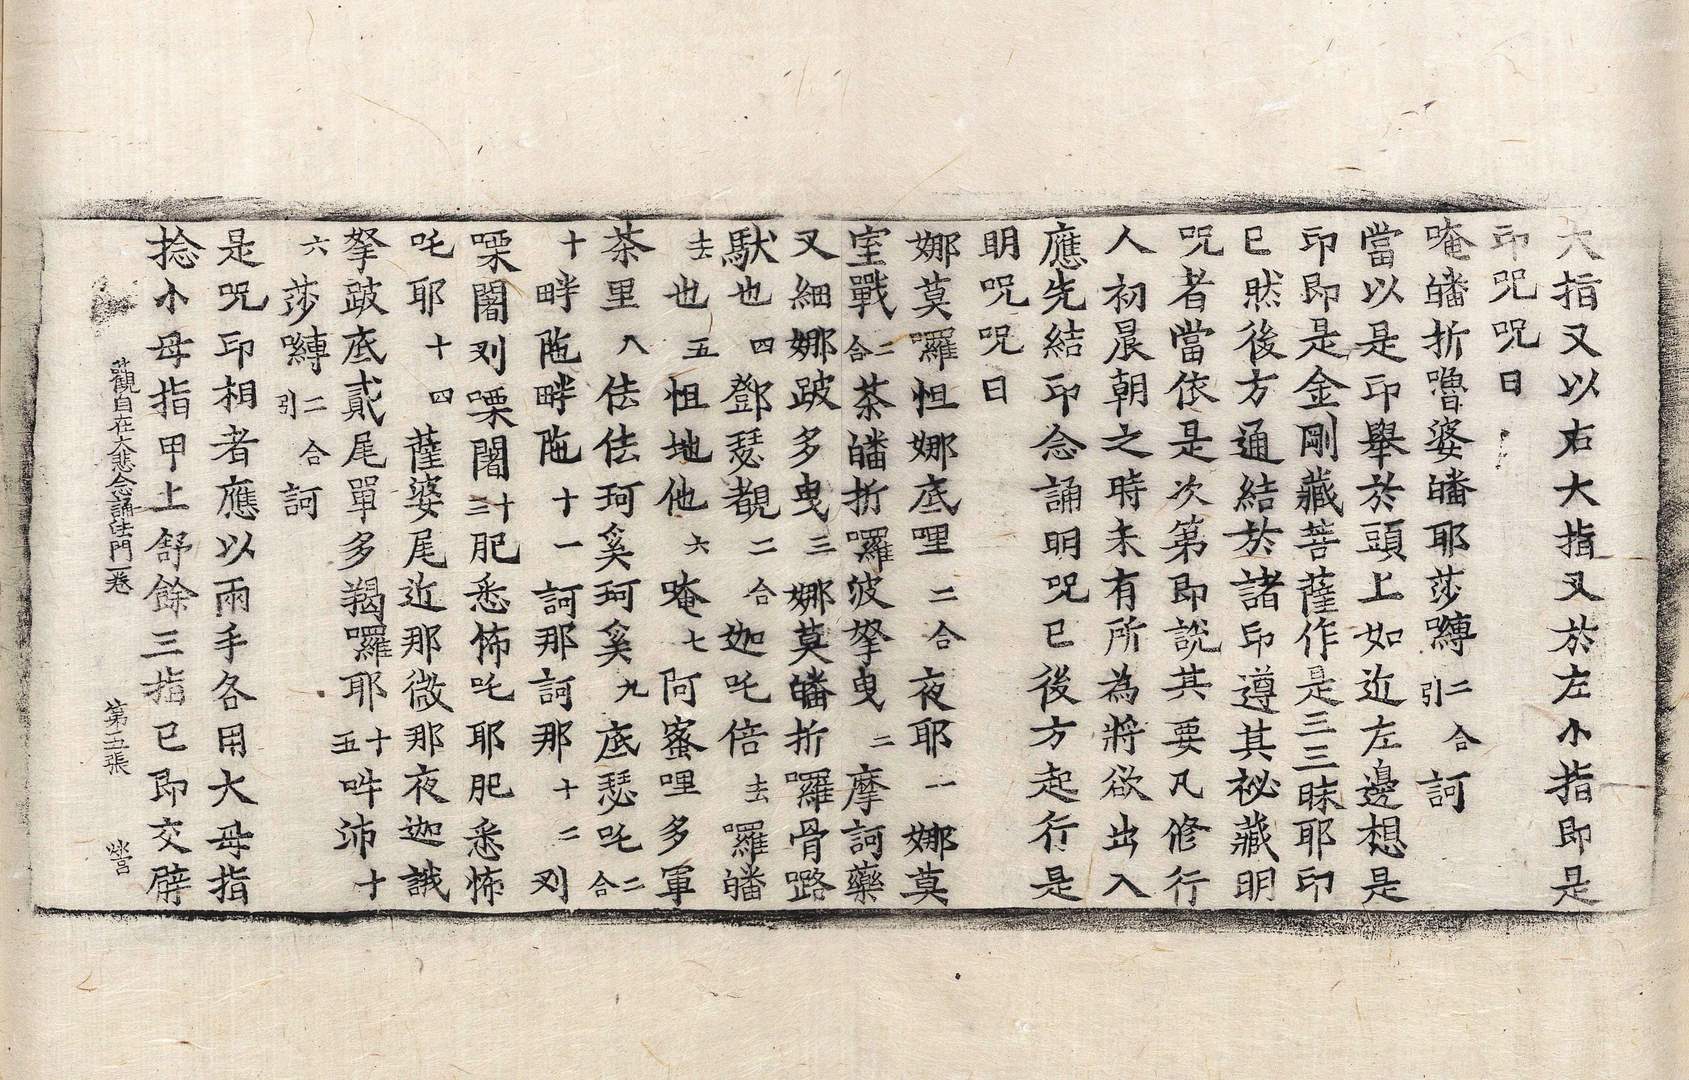 大指叉以右大指叉於左小指即是
印咒咒曰
唵皤折嚕婆皤耶莎嚩二合引訶
當以是印舉於頭上如近左邊想是
印即是金剛藏菩薩作是三三昧耶印
已然後方通結於諸印遵其祕藏明
咒者當依是次第即說其要凡修行
人初晨朝之時未有所為將欲出入
應先結印念誦明咒已後方起行是
明咒咒曰
娜莫囉怛娜底哩二合夜耶一娜莫
室戰二合荼皤折囉波拏曳二摩訶藥
叉細娜跛多曳三娜莫皤折囉骨㗰
馱也四鄧瑟覩二合迦吒倍去囉皤
去也五怛地他六唵七阿蜜哩多軍
荼里八佉佉珂奚珂奚九底瑟吒二合
十畔陁畔陁十一訶那訶那十二刈
㗚闍刈㗚闍十三肥悉怖吒耶肥悉怖
吒耶十四薩婆尾近那微那夜迦誐
拏跛底貳尾單多羯囉耶十五吽沛十
六莎嚩二合引訶
是咒印相者應以兩手各用大母指
捻小母指甲上舒餘三指已即交臂
觀自在大悲念誦法門一卷 第五張